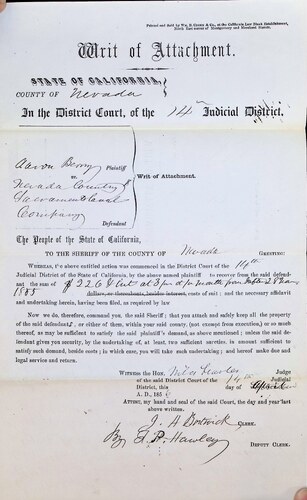 Printed and Sold by Wm. B. Cooke & Co., at the California Law Blank Establishment,
North East corner of Montgomery and Merchant Streets.
Writ of Attachment.
STATE OF CALIFORNIA,
COUNTY OF Nevada
In the District Court, of the 14 Judicial District.
Aaron Berry Plaintiff
vs.
Nevada County &
Sacramento Canal
Company
Defendant
Writ of Attachment.
The People of the State of California,
TO THE SHERIFF OF THE COUNTY OF Nevada GREETING:
WHEREAS, the above entitled action was commenced in the District Court of the 14th
Judicial District of the State of California, by the above named plaintiff to recover from the said defend-
ant the sum of $226 & int at 3 pr ct pr month from
1855 dollars, costs of suit; and the necessary affidavit
and undertaking herein, having been filed, as required by law
Now we do, therefore, command you, the said Sheriff; that you attach and safely keep all the property
of the said defendant, or either of them, within your said county, (not exempt from execution,) or so much
thereof, as may be sufficient to satisfy the said plaintiff's demand, as above mentioned; unless the said de-
fendant gives you security, by the undertaking of, at least, two sufficient sureties, in amount sufficient to
satisfy such demand, besides costs; in which case, you will take such undertaking; and hereof make due and
legal service and return.
WITNESS the HON. Judge
of the said District Court of the 14th Judicial
District, this day of April
A. D., 185
ATTEST, my hand and seal of said Court, the day and year last
above written.
J. H. Bostwick CLERK.
By T. P. Hawley
DEPUTY CLERK.